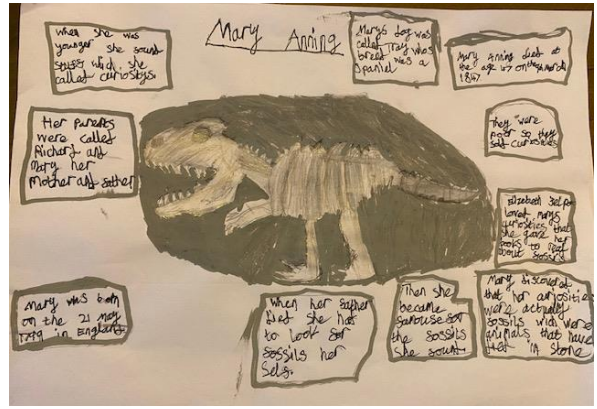 Mary Anning
when she was
younger she sound
stuff wich she
called curiostys.
Marys dog was
called Tray whos
breed was a
spaniel
Mary Anning died at
the age 47 on the March
1847
Her parents
were called
Richard and
Mary her
Mother and sather
They were
poor so they
sold curiosities
Elizabeth
loved marys
curiosities that
she gave her
books to read
about sossils
Mary was born
on the 21 May
1799 in England
when her sather
died she has
to look sor
sossils her
Sels.
Then she
became
samouse sor
the sossils
she sound
Mary discovered
that her curiosities
were actually
sossils wich were
animals that have
in stone